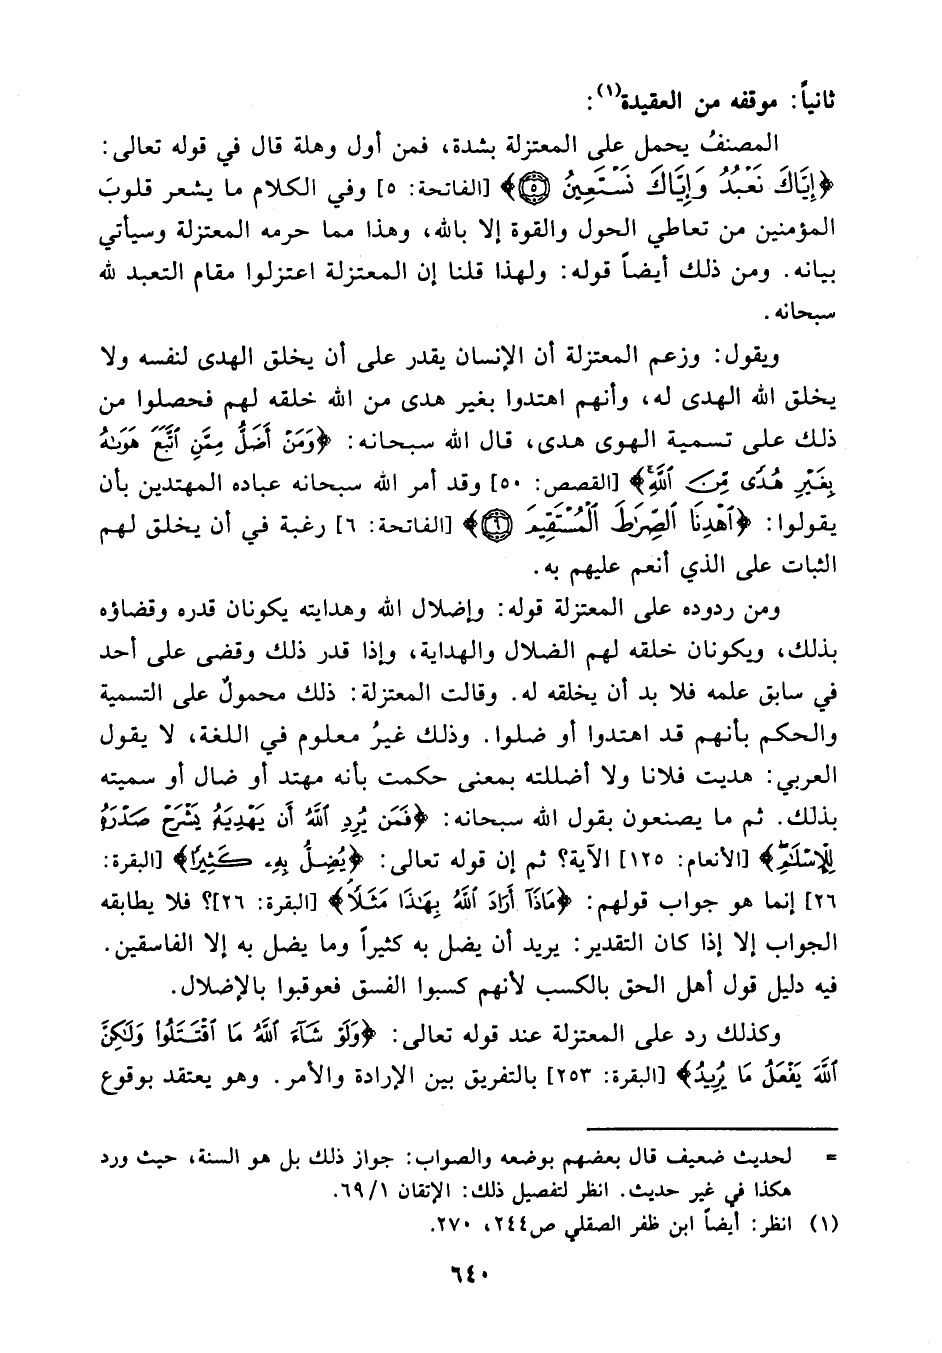 ثانياً: موقفه من العقيدة(١):
المصنفُ يحمل على المعتزلة بشدة، فمن أول وهلة قال في قوله تعالى:
﴿إِيَّاكَ نَعْبُدُ وَإِيَّاكَ نَسْتَعِينُ ۝٥﴾ [الفاتحة: ٥] وفي الكلام ما يشعر قلوبَ
المؤمنين من تعاطي الحول والقوة إلا بالله، وهذا مما حرمه المعتزلة وسيأتي
بيانه. ومن ذلك أيضاً قوله: ولهذا قلنا إن المعتزلة اعتزلوا مقام التعبد لله
سبحانه.
ويقول: وزعم المعتزلة أن الإنسان يقدر على أن يخلق الهدى لنفسه ولا
يخلق الله الهدى له، وأنهم اهتدوا بغير هدى من الله خلقه لهم فحصلوا من
ذلك على تسمية الهوى هدى، قال الله سبحانه: ﴿وَمَنْ أَضَلُّ مِمَّنِ ٱتَّبَعَ هَوَىٰهُ
بِغَيْرِ هُدًى مِّنَ ٱللَّهِ﴾ [القصص: ٥٠] وقد أمر الله سبحانه عباده المهتدين بأن
يقولوا: ﴿ٱهْدِنَا ٱلصِّرَٰطَ ٱلْمُسْتَقِيمَ ۝٦﴾ [الفاتحة: ٦] رغبة في أن يخلق لهم
الثبات على الذي أنعم عليهم به.
ومن ردوده على المعتزلة قوله: وإضلال الله وهدايته يكونان قدره وقضاؤه
بذلك، ويكونان خلقه لهم الضلال والهداية، وإذا قدر ذلك وقضى على أحد
في سابق علمه فلا بد أن يخلقه له. وقالت المعتزلة: ذلك محمولٌ على التسمية
والحكم بأنهم قد اهتدوا أو ضلوا. وذلك غيرُ معلوم في اللغة، لا يقول
العربي: هديت فلانا ولا أضللته بمعنى حكمت بأنه مهتد أو ضال أو سميته
بذلك. ثم ما يصنعون بقول الله سبحانه: ﴿فَمَن يُرِدِ ٱللَّهُ أَن يَهْدِيَهُۥ يَشْرَحْ صَدْرَهُۥ
لِلْإِسْلَٰمِ﴾ [الأنعام: ١٢٥] الآية؟ ثم إن قوله تعالى: ﴿يُضِلُّ بِهِۦ كَثِيرًا﴾ [البقرة:
٢٦] إنما هو جواب قولهم: ﴿مَاذَآ أَرَادَ ٱللَّهُ بِهَٰذَا مَثَلًا﴾ [البقرة: ٢٦]؟ فلا يطابقه
الجواب إلا إذا كان التقدير: يريد أن يضل به كثيراً وما يضل به إلا الفاسقين.
فيه دليل قول أهل الحق بالكسب لأنهم كسبوا الفسق فعوقبوا بالإضلال.
وكذلك رد على المعتزلة عند قوله تعالى: ﴿وَلَوْ شَآءَ ٱللَّهُ مَا ٱقْتَتَلُوا۟ وَلَٰكِنَّ
ٱللَّهَ يَفْعَلُ مَا يُرِيدُ﴾ [البقرة: ٢٥٣] بالتفريق بين الإرادة والأمر. وهو يعتقد بوقوع
= لحديث ضعيف قال بعضهم بوضعه والصواب: جواز ذلك بل هو السنة، حيث ورد
هكذا في غير حديث. انظر لتفصيل ذلك: الإتقان ٦٩/١.
(١) انظر: أيضاً ابن ظفر الصقلي ص٢٤٤، ٢٧٠.
٦٤٠